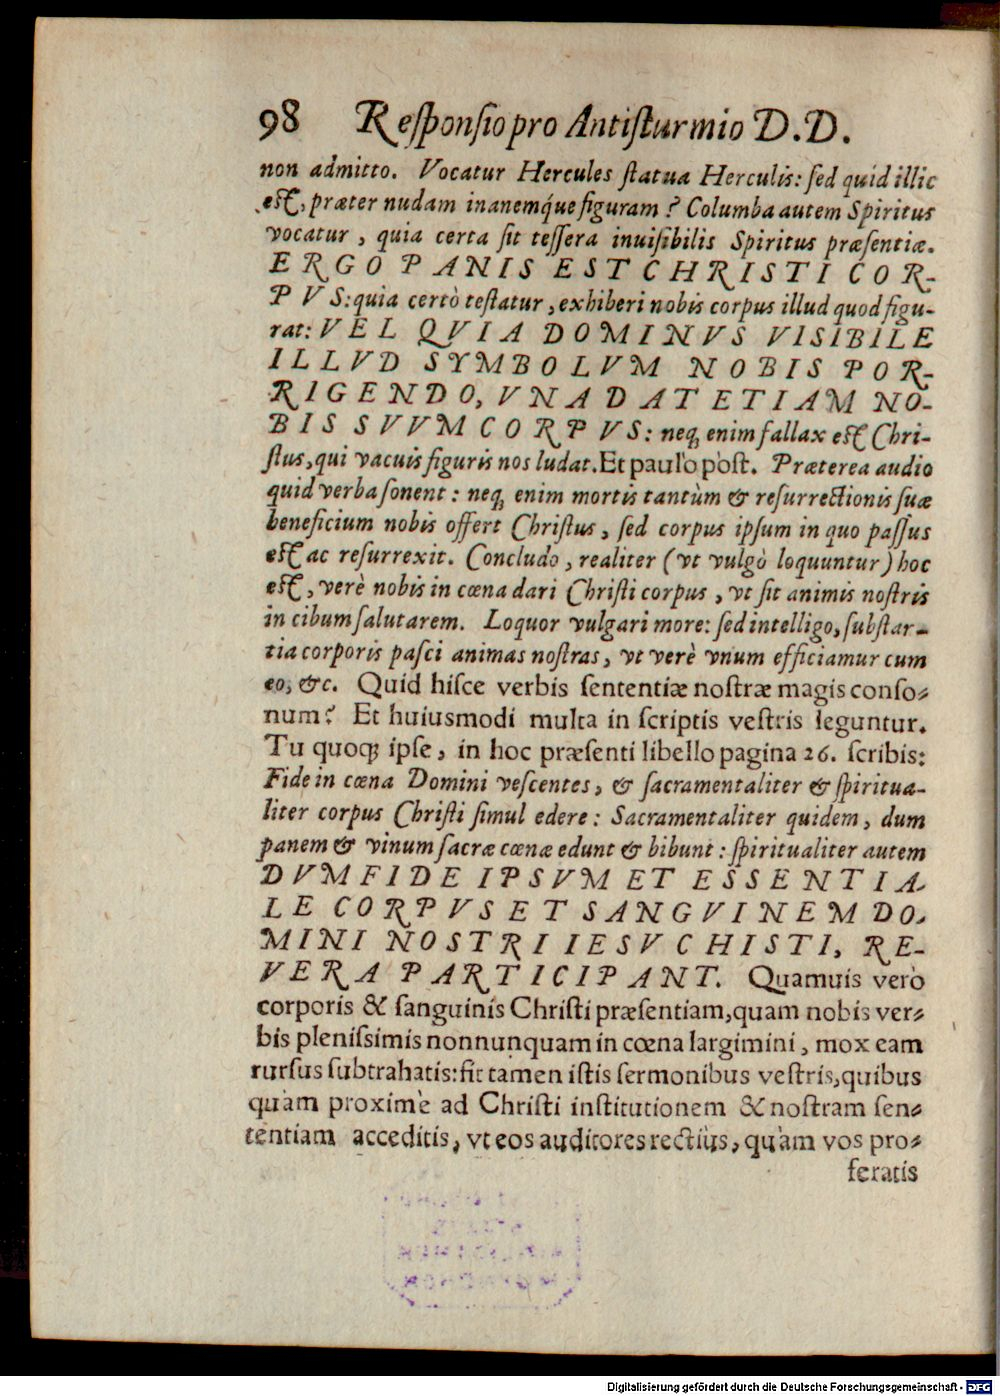 98 Responsio pro Antisturmio D.D.
non admitto. Vocatur Hercules statua Herculis: sed quid illic
est, præter nudam inanemq́ue figuram? Columba autem Spiritus
vocatur, quia certa sit tessera inuisibilis Spiritus præsentiæ.
ERGO PANIS EST CHRISTI COR-
PVS: quia certò testatur, exhiberi nobis corpus illud quod figu-
rat: VEL QVIA DOMINVS VISIBILE
ILLVD SYMBOLVM NOBIS POR-
RIGENDO, VNA DAT ETIAM NO-
BIS SVVM CORPVS: neq; enim fallax est Chri-
stus, qui vacuis figuris nos ludat. Et paulò pòst. Præterea audio
quid verba sonent: neq; enim mortis tantùm & resurrectionis suæ
beneficium nobis offert Christus, sed corpus ipsum in quo passus
est ac resurrexit. Concludo, realiter (vt vulgò loquuntur) hoc
est, verè nobis in cœna dari Christi corpus, vt sit animis nostris
in cibum salutarem. Loquor vulgari more: sed intelligo, substar-
tia corporis pasci animas nostras, vt verè vnum efficiamur cum
eo, &c. Quid hisce verbis sententiæ nostræ magis conso-
num? Et huiusmodi multa in scriptis vestris leguntur.
Tu quoq; ipse, in hoc præsenti libello pagina 26. scribis:
Fide in cœna Domini vescentes, & sacramentaliter & spiritua-
liter corpus Christi simul edere: Sacramentaliter quidem, dum
panem & vinum sacræ cœnæ edunt & bibunt: spiritualiter autem
DVM FIDE IPSVM ET ESSENTIA-
LE CORPVS ET SANGVINEM DO-
MINI NOSTRI IESV CHISTI, RE-
VERA PARTICIPANT. Quamuis verò
corporis & sanguinis Christi præsentiam, quam nobis ver-
bis plenissimis nonnunquam in cœna largimini, mox eam
rursus subtrahatis: fit tamen istis sermonibus vestris, quibus
quàm proximè ad Christi institutionem & nostram sen-
tentiam acceditis, vt eos auditores rectiùs, quàm vos pro-
feratis
Digitalisierung gefördert durch die Deutsche Forschungsgemeinschaft - DFG